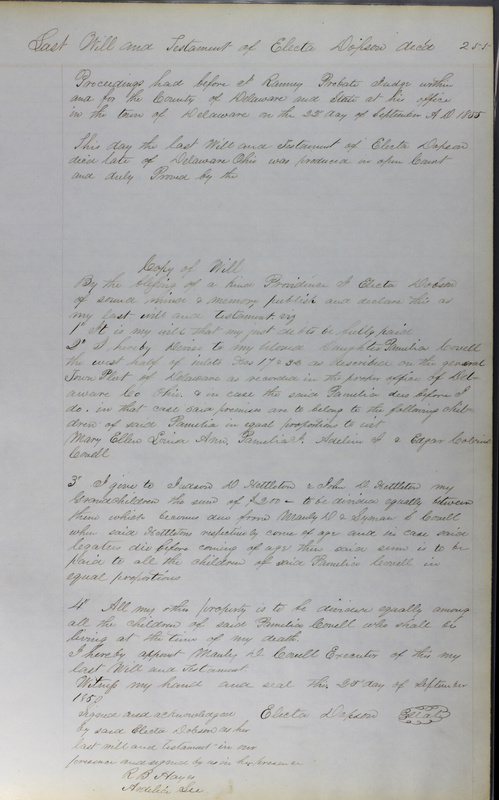 Last Will and Testament of Electa Dopson decd 255
Proceedings had before Ranney Probate Judge within
and for the County of Delaware and State at his office
in the town of Delaware on the 22d day of September A.D 1855
This day the last Will and Testament of Electa Dopson
decd late of Delaware Ohio was produced in open Court
and duly Proved by the
Copy of Will
By the blessing of a kind Providence I Electa Dobson
of sound mind & memory publish and declare this as
my last will and testament viz
1st It is my will that my just debts be fully paid
2d I hereby devise to my beloved daughter Pamelia Covell
the west half of inlots Nos 17 & as described on the general
Town Plat of Delaware as recorded in the proper office of Del-
aware Co Ohio. & in case the said Pamelia dies before I
do. in that case said premises are to belong to the following chil-
dren of said Pamelia in equal proportions to wit
Mary Ellen Louisa Ann, Pamelia Adeline & Edgar
Covell
3d I give to Judson D Kettleton & John D Kettleton my
Grandchildren the sum of $200 - to be divided equally between
them which becomes due from Manly D & Lyman C Covell
when said Kettletons respectively come of age and in case said
legatees die before coming of age then said sum is to be
paid to all the children of said Pamelia Covell in
equal proportions
4th All my other property is to be divided equally among
all the children of said Pamelia Covell who shall be
living at the time of my death.
I hereby appoint Manly D Covell Executor of this my
last Will and Testament.
Witness my hand and seal this 25th day of September
1850
Signed and acknowledged Electa Dopson Seal
by said Electa Dobson as her
last will and testament in our
presence and signed by us in her presence
R B Hayes
Lee